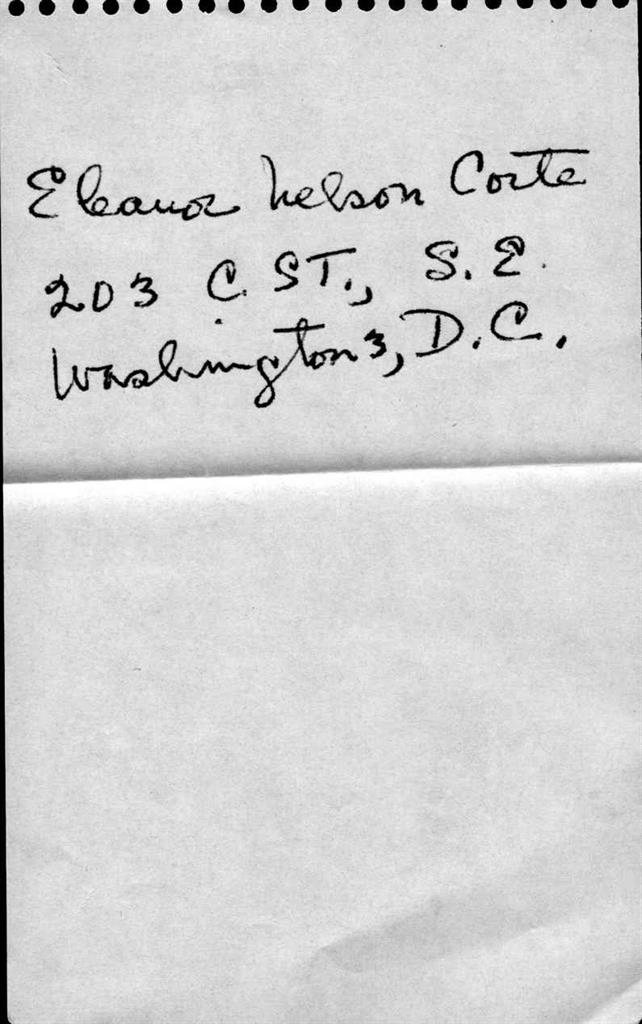 Eleanor Nelson Corte
203 C. ST., S.E.
Washington 3, D.C.